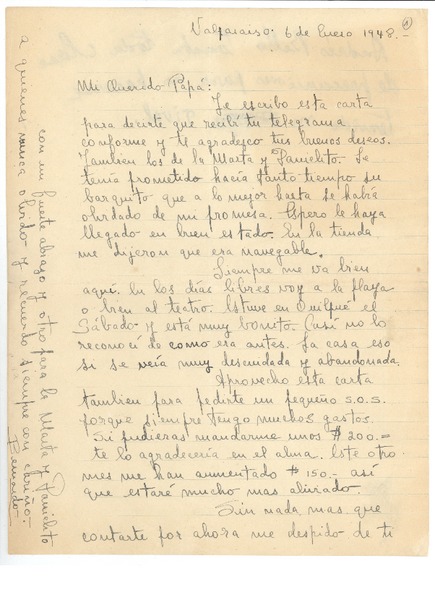 Valparaiso. 6 de Enero 1948.-
1
Mi Querido Papá:
Te escribo esta carta
para decirte que recibí tu telegrama
conforme y te agradesco tus buenos deseos.
Tambien los de la Marta y Panichito. Le
tenía prometido hacía tanto tiempo su
barquito que a lo mejor hasta se había
olvidado de mi promesa. Espero le haya
llegado en buen estado. En la tienda
me dijeron que era navegable.
Siempre me va bien
aquí. En los días libres voy a la playa
o bien al teatro. Estuve en Quilpué el
Sábado y está muy bonito. Casi no lo
reconocí de como era antes. La casa eso
si se veía muy descuidada y abandonada.
Aprovecho esta carta
tambien para pedirte un pequeño S.O.S.
porque siempre tengo muchos gastos.
Si pudieras mandarme unos $ 200.=
te lo agradecería en el alma. Este otro
mes me han aumentado $ 150.- así
que estaré mucho mas aliviado.
Sin nada mas que
contarte por ahora me despido de ti
con un fuerte abrazo y otro para la Marta y Panichito
a quienes nunca olvido y recuerdo siempre con cariño.